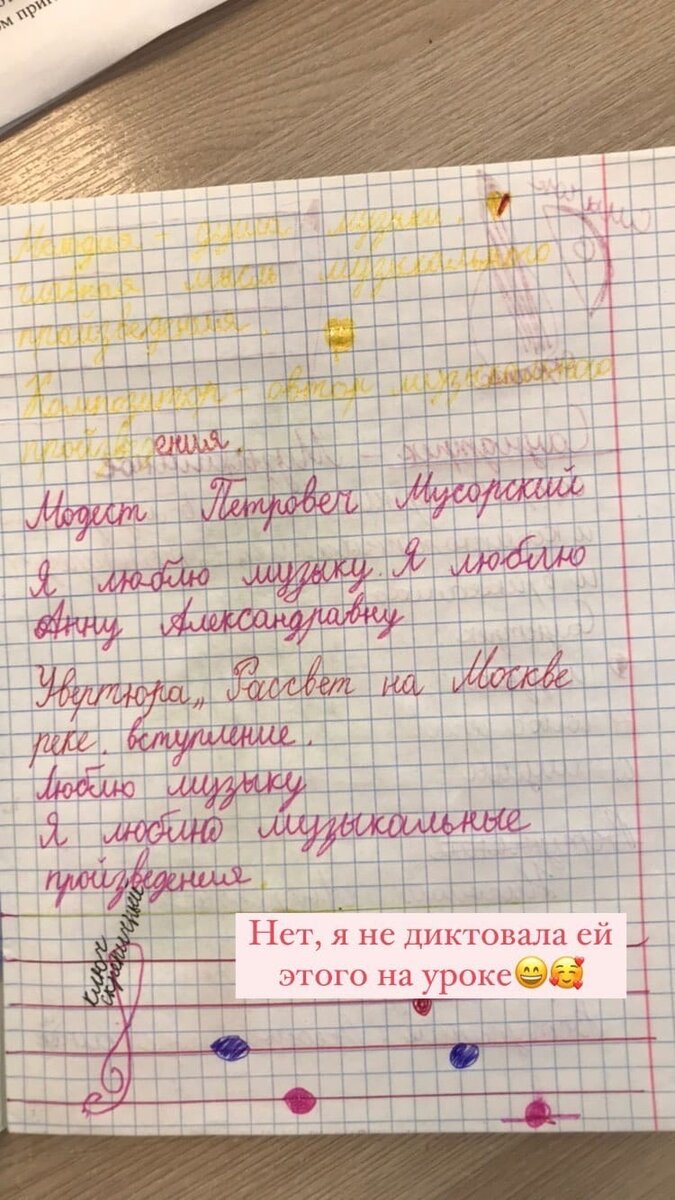 ом при
Мелодия - душа музыки.
главная мысль музыкального
пройзведения.
Композитор - автор музыкального
пройзведения.
Модест Петровеч Мусорский
Я люблю музыку. Я люблю
Анну Александравну
Увертюра „ Рассвет на Москве
реке. вступление.
Люблю музыку
Я люблю музыкальные
пройзведения
ключ
скрепичный
Нет, я не диктовала ей
этого на уроке😄🥰